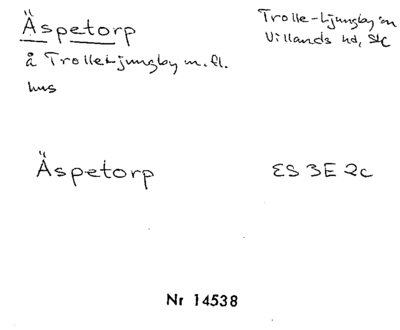 Äspetorp
Trolle-Ljungby sn
Villands hd, Skc
å Trolle Ljungby m. fl.
hus
Äspetorp
ES 3E 2c
Nr 14538